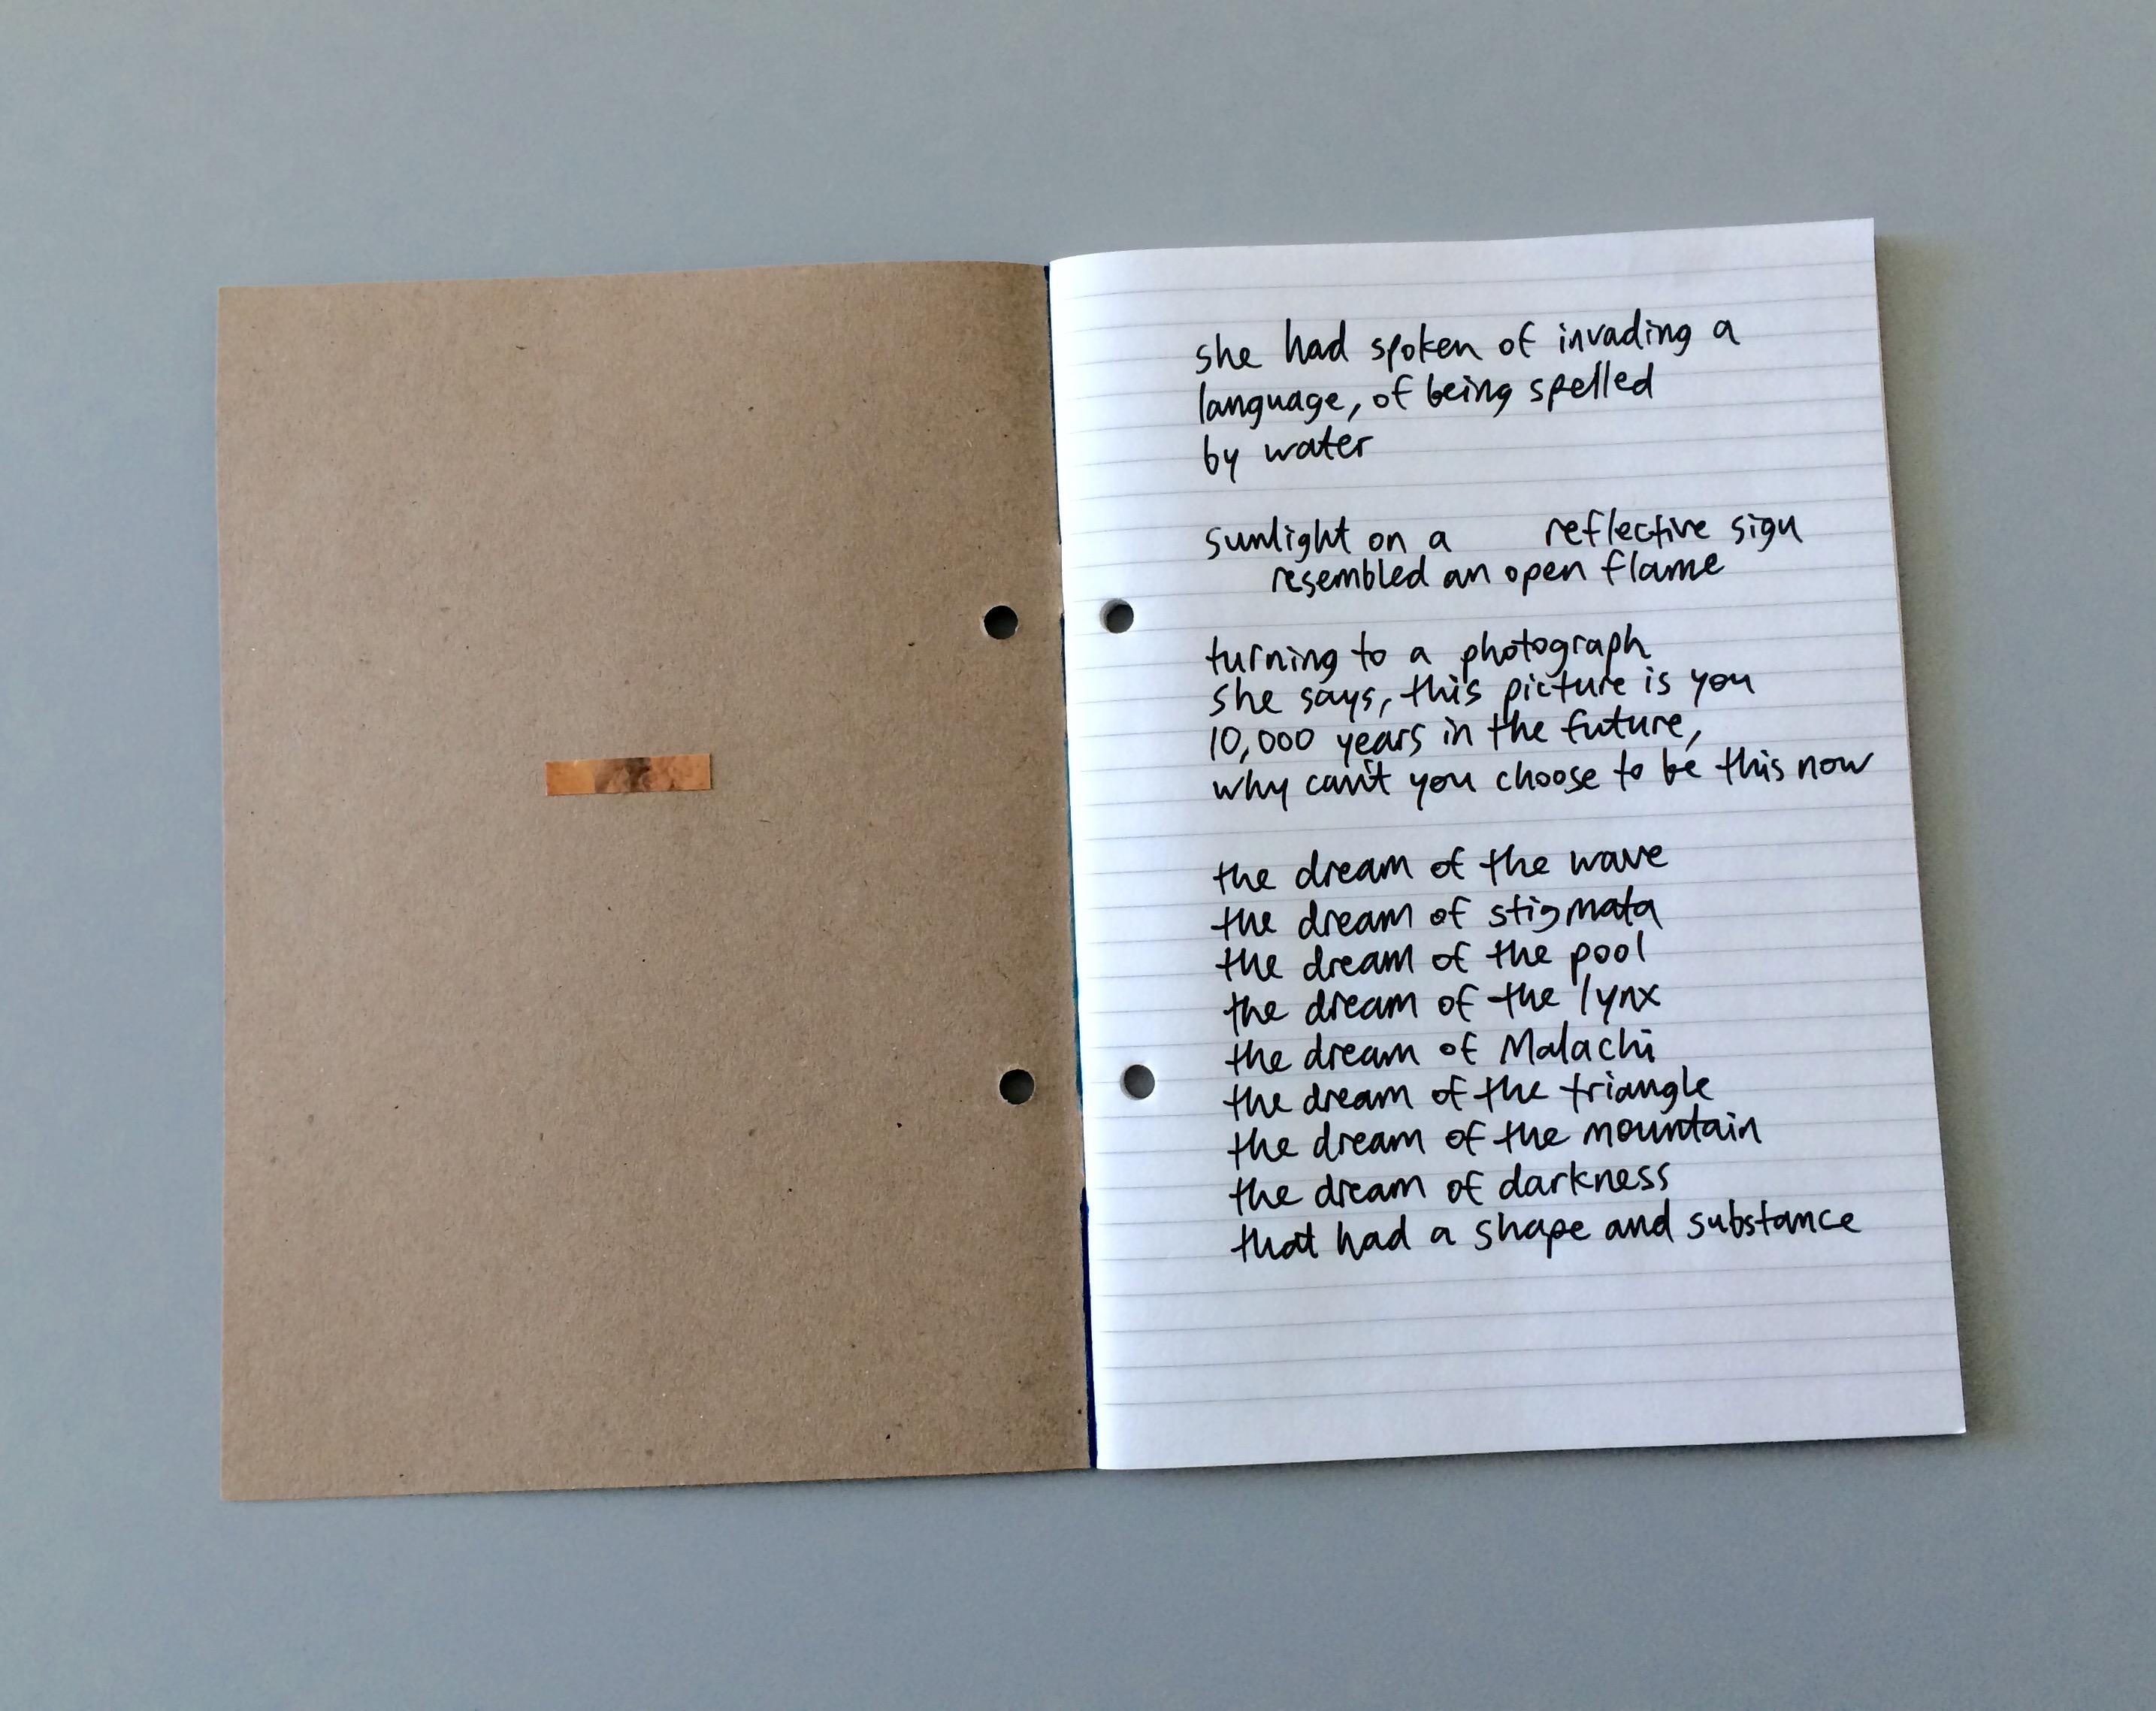 she had spoken of invading a
language, of being spelled
by water
sunlight on a reflective sign
resembled an open flame
turning to a photograph
she says, this picture is you
10,000 years in the future,
why can't you choose to be this now
the dream of the wave
the dream of stigmata
the dream of the pool
the dream of the lynx
the dream of Malachi
the dream of the triangle
the dream of the mountain
the dream of darkness
that had a shape and substance